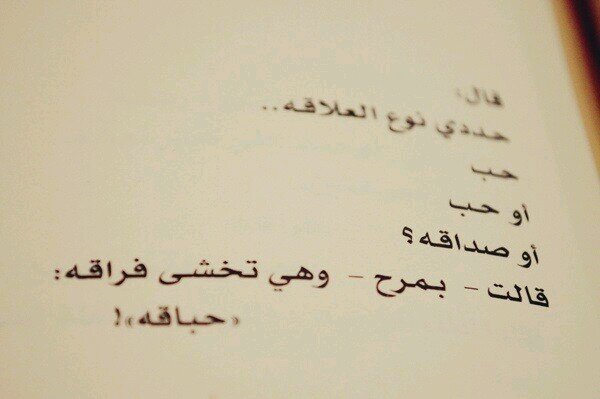 قال:
حددي نوع العلاقه..
حب
أو حب
أو صداقه؟
قالت - بمرح - وهي تخشى فراقه:
«حباقه»!